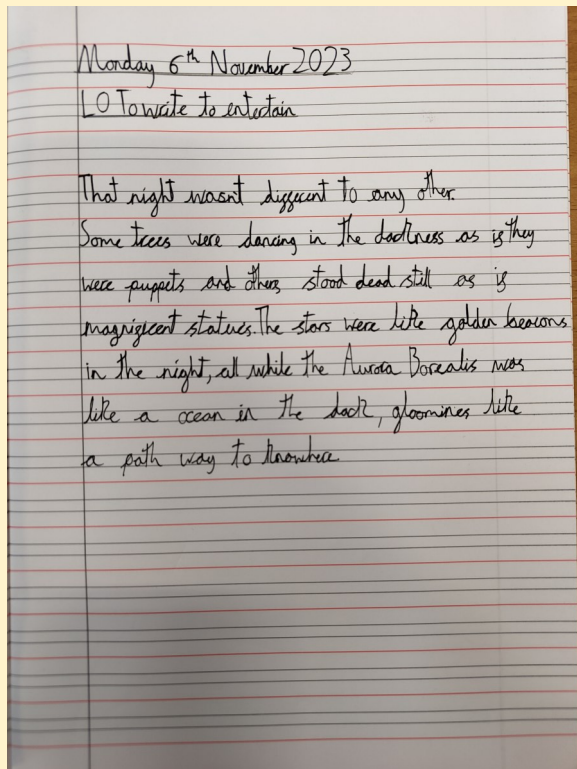 Monday 6th November 2023
LO To write to entertain
That night wasnt different to any other.
Some trees were dancing in the darkness as if they
were puppets and others, stood dead still as if
magnificent statues. The stars were like golden beacons
in the night, all while the Aurora Borealis was
like a ocean in the dark, gloomines like
a path way to knowhere